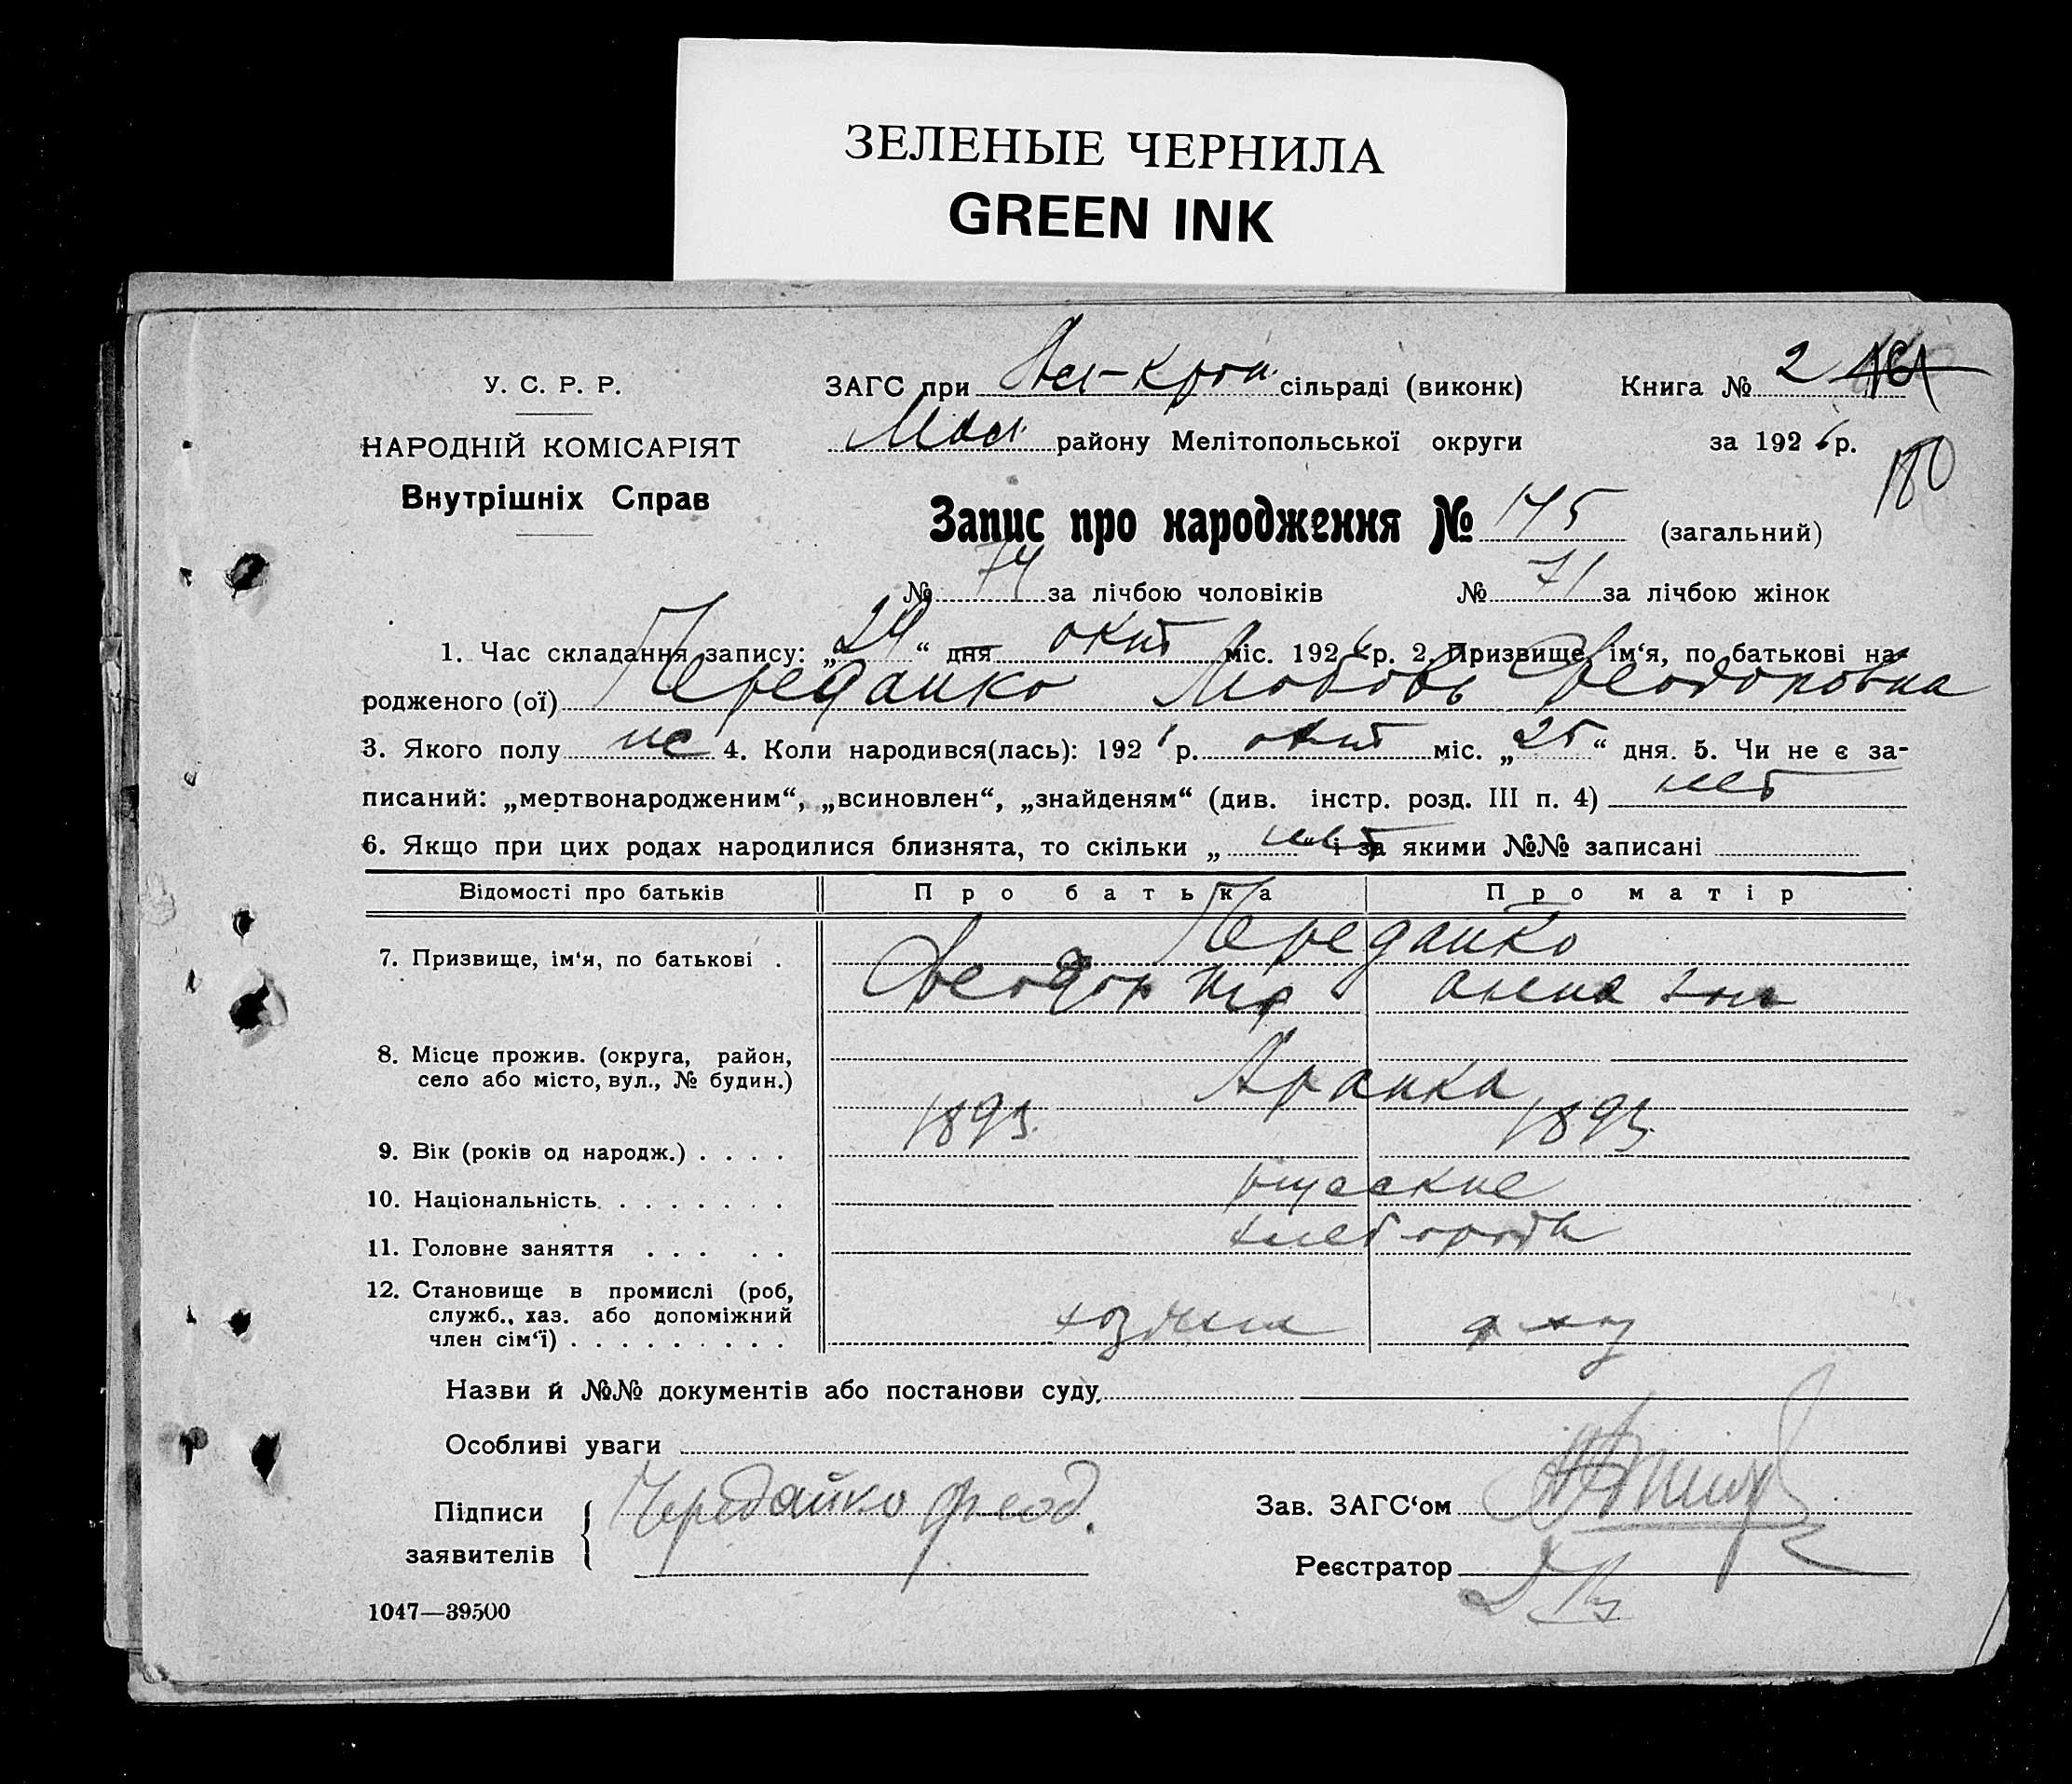 ЗЕЛЕНЫЕ ЧЕРНИЛА
GREEN INK
У. С. Р. Р.
НАРОДНІЙ КОМІСАРІЯТ
Внутрішніх Справ
ЗАГС при сільраді (виконк)
району Мелітопольської округи
Книга № 2
за 1926 р.
180
Запис про народження № 145 (загальний)
№ 74 за лічбою чоловіків № 71 за лічбою жінок
1. Час складання запису: „ 24 “ дня окт міс. 1926 р. 2. Призвище, ім‘я, по батькові на-
родженого (ої) Чередайко Любовь Феодоровна
3. Якого полу 4. Коли народився(лась): 192 р. окт міс. „ 25 “ дня. 5. Чи не є за-
писаний: „мертвонародженим“, „всиновлен“, „знайденям“ (див. інстр. розд. III п. 4) нет
6. Якщо при цих родах народилися близнята, то скільки „ нет “ і за якими №№ записані
Відомості про батьків Про батька Про матір
7. Призвище, ім‘я, по батькові . Чередайко
Феодор Анна
8. Місце прожив. (округа, район,
село або місто, вул., № будин.)
9. Вік (років од народж.) . . . . 1893 1893
10. Національність . . . . . . . русские
11. Головне заняття . . . . . хлебороды
12. Становище в промислі (роб,
служб., хаз. або допоміжний
член сім‘ї) . . . . . . . . .
Назви й №№ документів або постанови суду
Особливі уваги
Підписи
заявителів
Чередайко Феод.
Зав. ЗАГС‘ом
Реєстратор
1047—39500